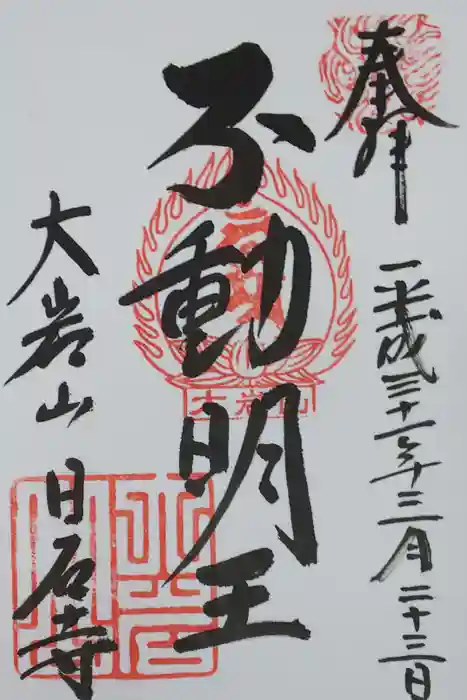 奉拝
平成三十一年三月二十三日
不動明王
大岩山
大岩山
日石寺